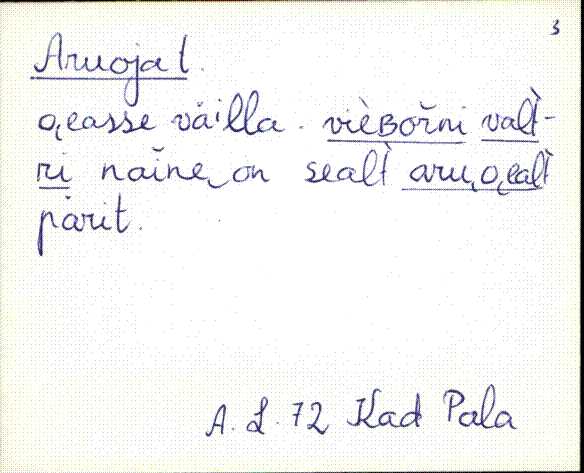 3
Aruojal.
o̯easse väilla. vièʙořni valt̀-
ri naǐne‿on sealt̀ aru‿o̯ealt̀
pärit.
A. L. 72 Kad Pala